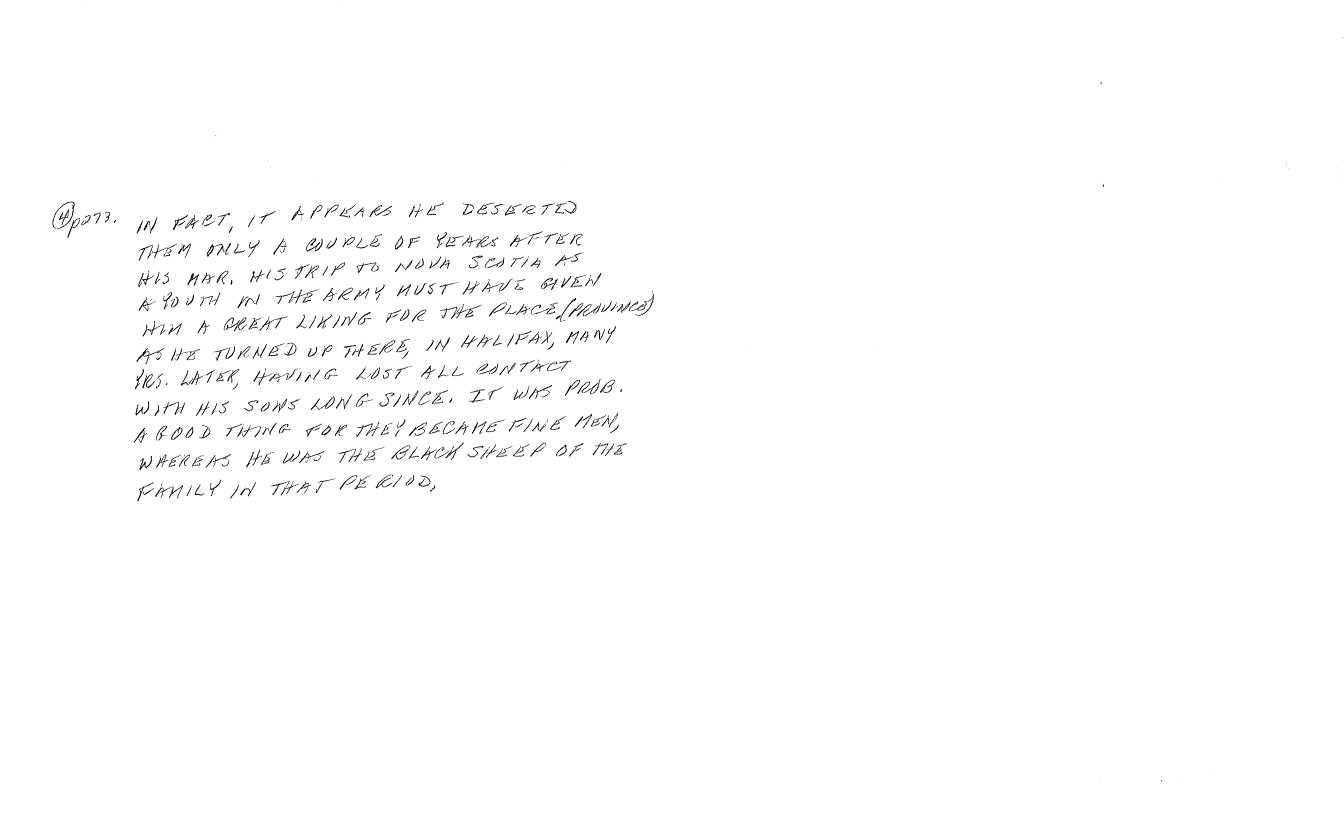 ④ p273. IN FACT, IT APPEARS HE DESERTED
THEM ONLY A COUPLE OF YEARS AFTER
HIS MAR. HIS TRIP TO NOVA SCOTIA AS
A YOUTH IN THE ARMY MUST HAVE GIVEN
HIM A GREAT LIKING FOR THE PLACE (PROVINCE)
AS HE TURNED UP THERE, IN HALIFAX, MANY
YRS. LATER, HAVING LOST ALL CONTACT
WITH HIS SONS LONG SINCE. IT WAS PROB.
A GOOD THING FOR THEY BECAME FINE MEN,
WHEREAS HE WAS THE BLACK SHEEP OF THE
FAMILY IN THAT PERIOD,